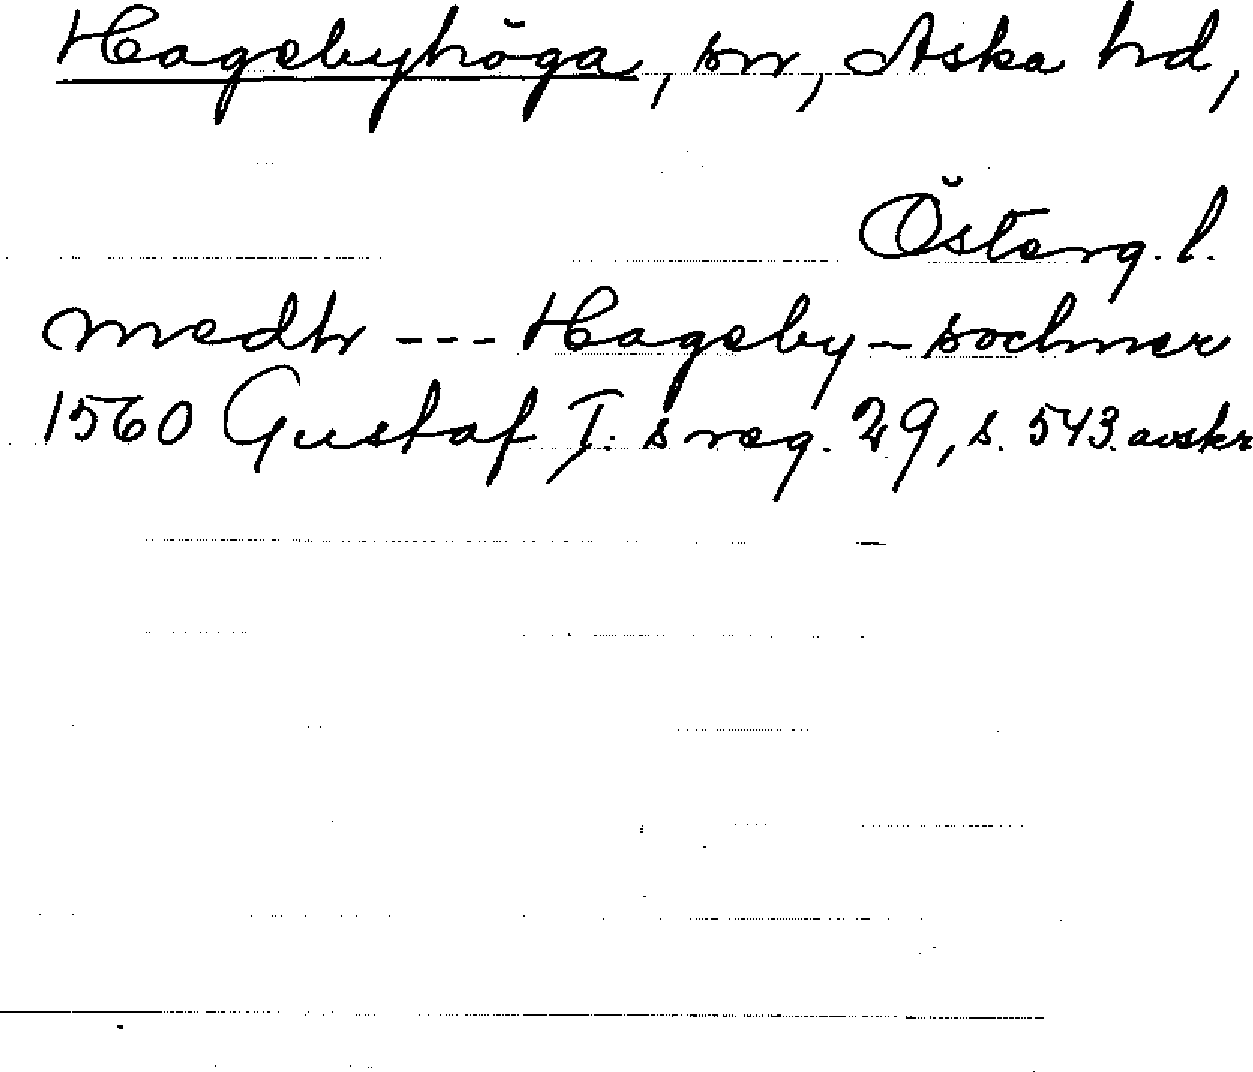 Hagebyhöga, sn, Aska hd,
Österg. l.
medh --- Hageby-sochner
1560 Gustaf I:s reg. 29, s. 543. avskr